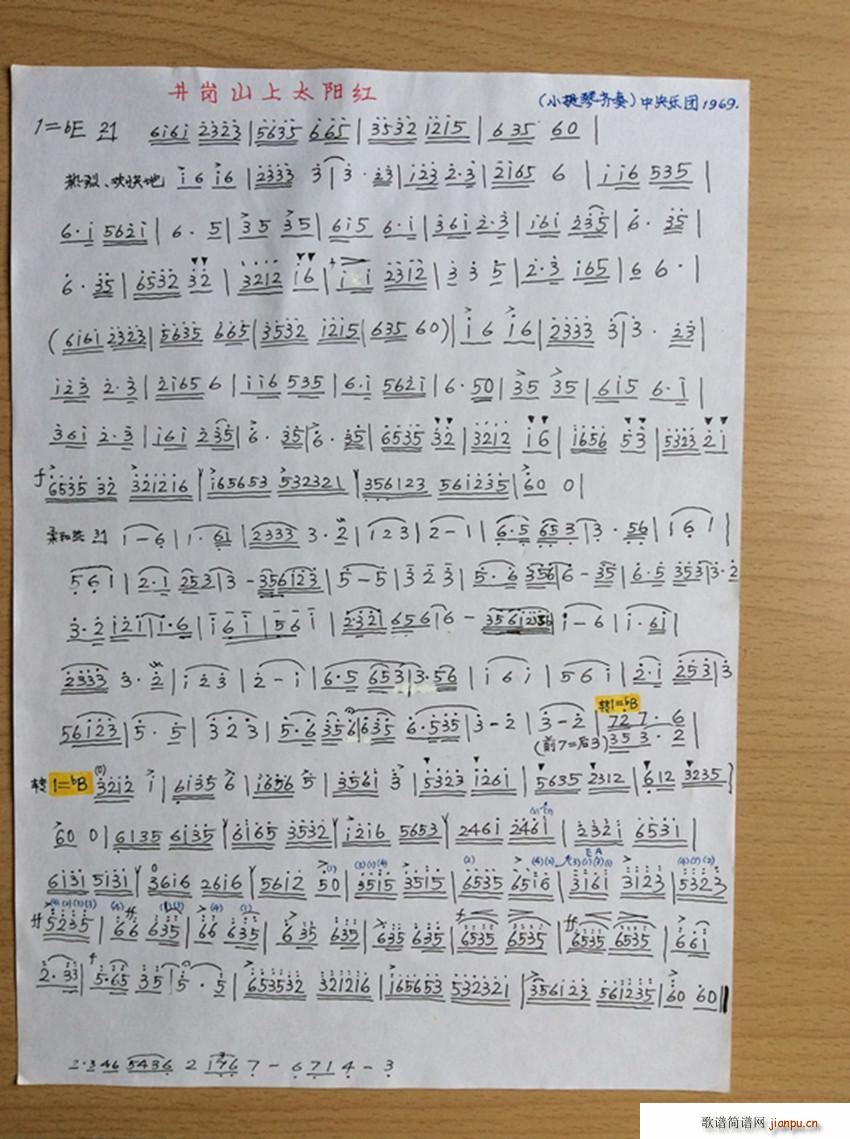 井岗山上太阳红
(小提琴齐奏) 中央乐团 1969.
1=bE 2/4 6161 2323 | 5635 665 | 3532 1215 | 6 35 60 |
热烈、欢快地 16 16 | 2333 3 | 3 · 23 | 123 2·3 | 2165 6 | 116 535 |
6·1 5621 | 6 · 5 | 35 35 | 615 6·1 | 361 2·3 | 161 235 | 6 · 35 |
6 · 35 | 6532 32 | 3212 16 | 1 1 2312 | 3 3 5 | 2·3 165 | 6 6 · |
( 6161 2323 | 5635 665 | 3532 1215 | 635 60 ) | 16 16 | 2333 3 | 3 · 23 |
123 2·3 | 2165 6 | 116 535 | 6·1 5621 | 6 · 50 | 35 35 | 615 6·1 |
361 2·3 | 161 235 | 6 · 35 | 6 · 35 | 6535 32 | 3212 16 | 1656 53 | 5323 21 |
f 6535 32 321216 | 165653 532321 | 356123 561235 | 60 0 |
1 - 6 | 1 · 61 | 2333 3 · 2 | 1 2 3 | 2 - 1 | 6·5 653 | 3 · 56 | 1 6 1 |
5 6 1 | 2·1 253 | 3 - 356123 | 5 - 5 | 3 2 3 | 5 · 6 356 | 6 - 35 | 6·5 353 | 3·2
3·2 121 | 1·6 | 1 6 1 | 5 6 1 | 2·321 656 | 6 -
1 - 6 | 1 · 61 |
2333 3 · 2 | 1 2 3 | 2 - 1 | 6·5 653 | 3·56 | 1 6 1 | 5 6 1 | 2·1 253 | 3
转1=bB
561235 | 5 · 5 | 3 2 3 | 5·6 356 | 635 6·535 | 3 - 2 | 3 - 2 | 727·6
(前7=后3) 353·2
转 1=bB 3212 1 | 6135 6 | 1656 5 | 3561 3 | 5323 1261 | 5635 2312 | 612 3235 |
60 0 | 6135 6135 | 6165 3532 | 1216 5653 | 2461 2461 | 2321 6531 |
6131 5131 | 3616 2616 | 5612 50 | 3515 3515 | 6535 6516 | 3161 3123 | 5323
5235 | 66 635 | 66 635 | 635 635 | 635 635 | 6535 6535 | 6535 6535 | 661 |
2·33 | 5·65 35 | 5 · 5 | 653532 321216 | 165653 532321 | 356123 561235 | 60 60 ||
2·346 5436 2 176 7 - 6714 - 3
歌谱简谱网 jianpu.cn